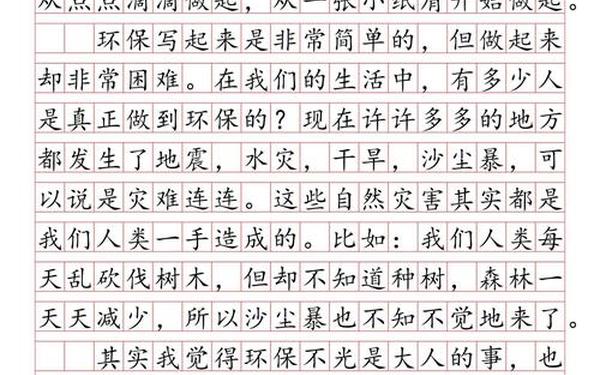 从点点滴滴做起，从一张小纸屑开始做起。
环保写起来是非常简单的，但做起来
却非常困难。在我们的生活中，有多少人
是真正做到环保的？现在许许多多的地方
都发生了地震，水灾，干旱，沙尘暴，可
以说是灾难连连。这些自然灾害其实都是
我们人类一手造成的。比如：我们人类每
天乱砍伐树木，但却不知道种树，森林一
天天减少，所以沙尘暴也不知不觉地来了。
其实我觉得环保不光是大人的事，也